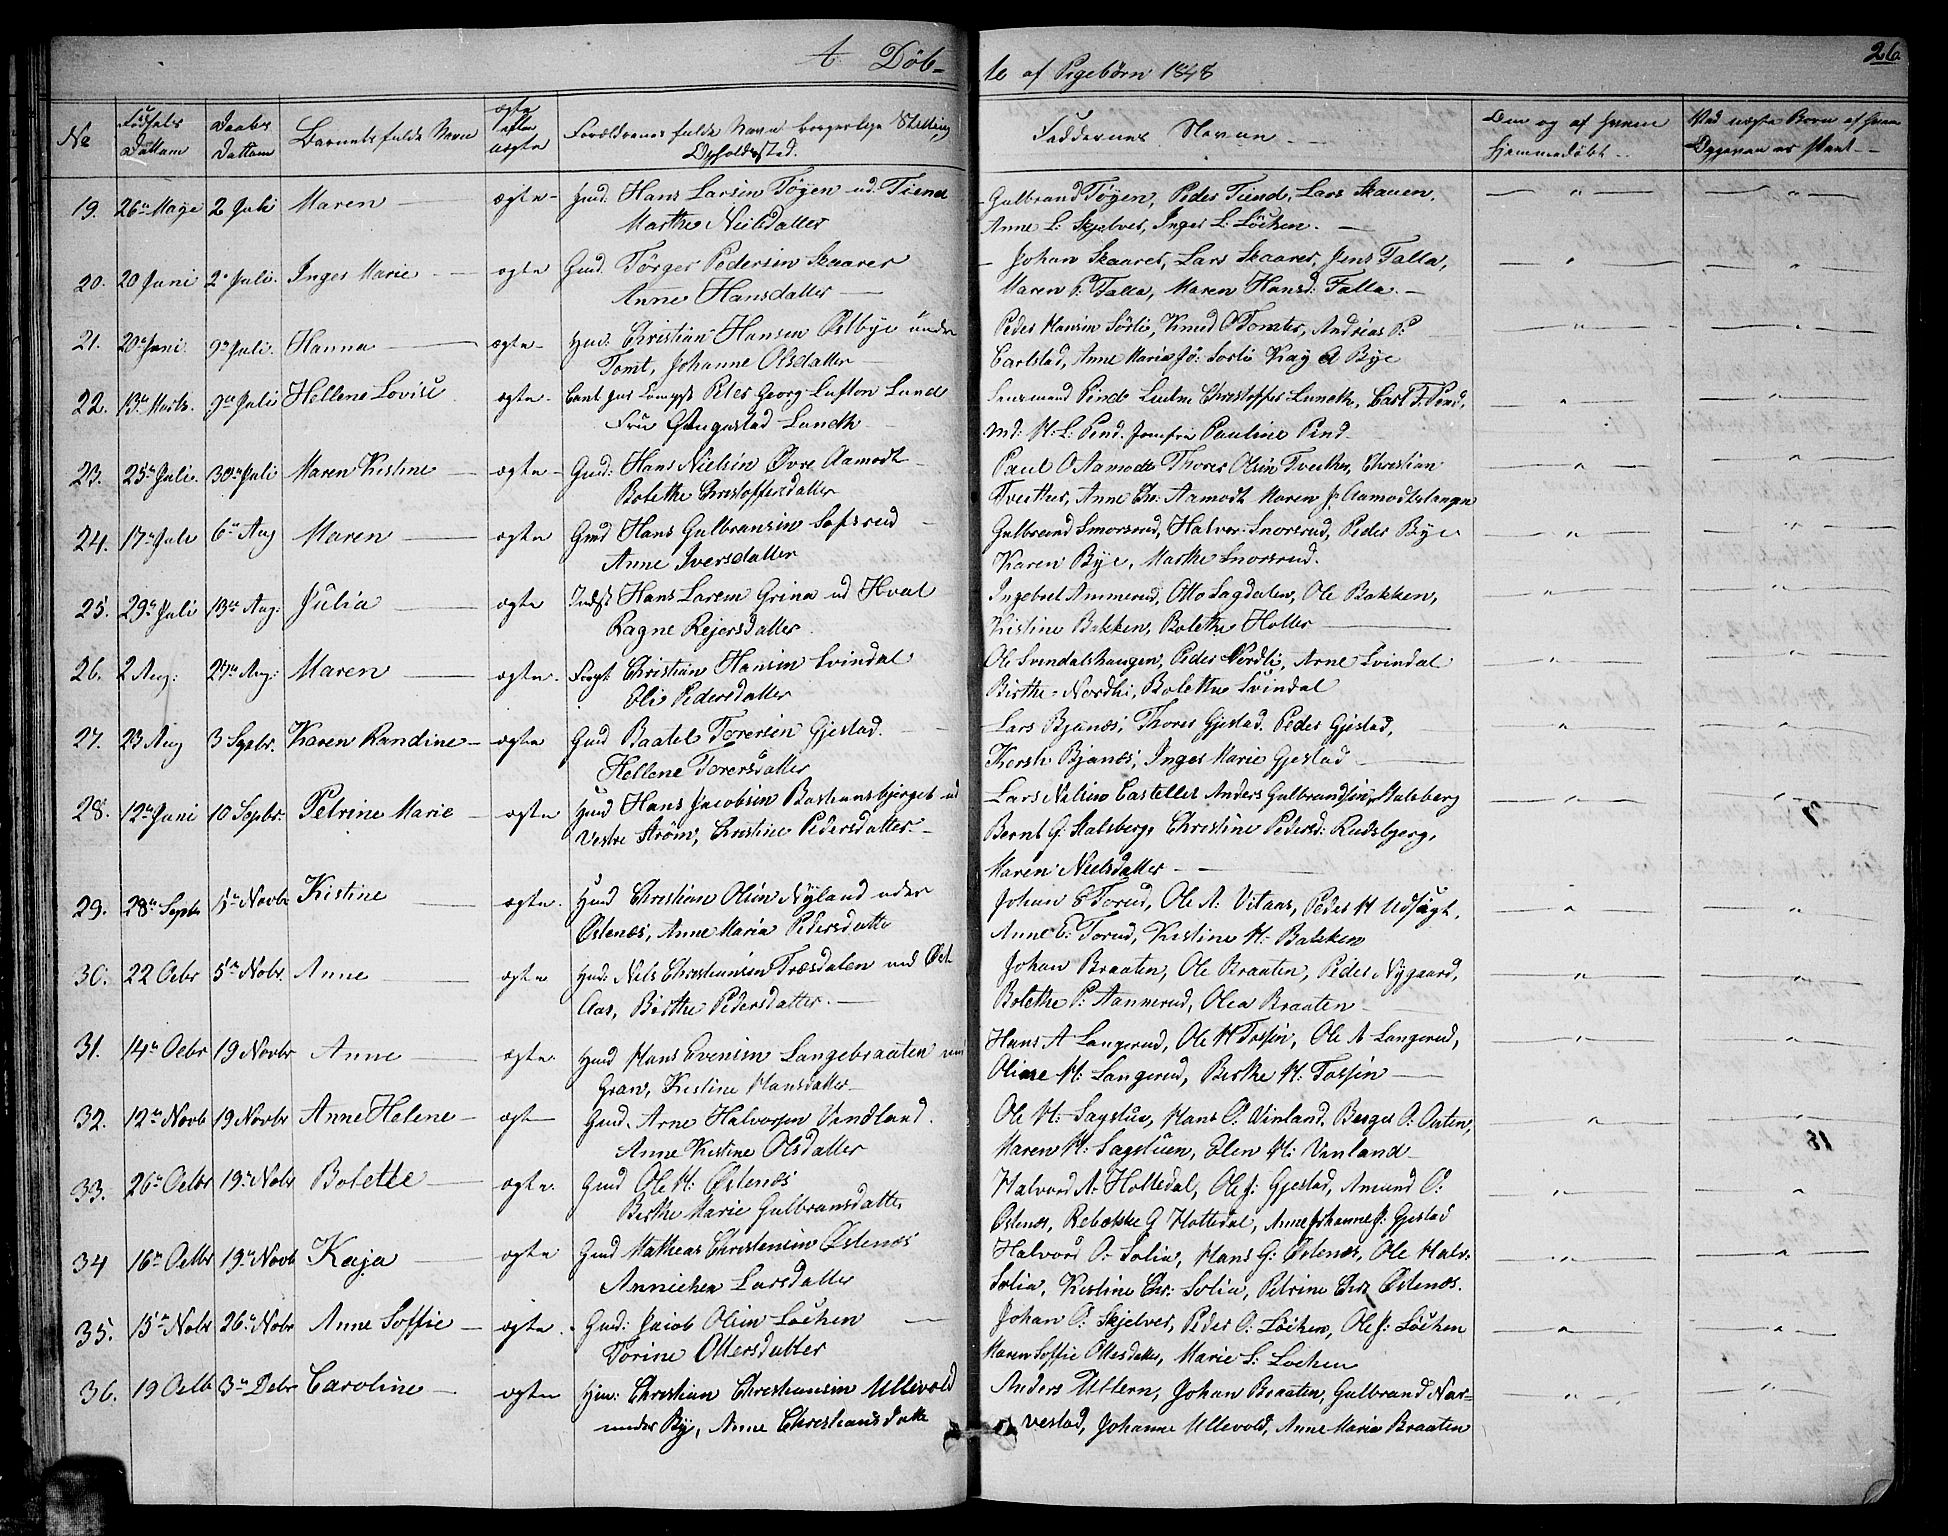 A Døb-
te af Pigebørn 1848
26
No
Fødsels Dattum
Daabs Dattum
Barnets fulde Navn
ægte eller uægte
Forældrenes fulde Navn borgerlige Stilling, Opholdssted.
Faddernes Navn
Om og af hvem hjemmedøbt
Ved uægte Børn af hvem Opgaven er skeet
19. 26de Maye 2 Juli Maren ægte Gmd. Hans Larsen Tøyen ud: Tiend
Marthe Nielsdatter
Gulbrand Tøyen, Peder Tiend, Lars Skauen,
Anne L: Skjelver, Inger L: Löchen.
20. 20 Juni 2n Juli. Inger Marie ægte Gmd. Törger Pedersen Skaarer
Anne Hansdatter
Johan Skaarer, Lars Skaarer, Jens Falla,
Maren P: Falla, Maren Hansd: Falla.
21. 20n Juni 9n Juli. Hanna ægte Hmd: Christian Hansen Østbye under
Tomt, Johanne Olsdatter
Peder Hansen Sörli, Knud O Tomter, Andreas P:
Carlstad, Anne Maria Jö: Sorli Kay A Bye
22. 13n Marts. 9n Juli Hellene Lovise ægte Peter Georg Lund
Fru Lundh
Pind Christoffer Lundh, Carl F. Pind,
Md: H: L: Pind. Jomfru Pauline Pind
23. 25n Juli. 30n Juli Maren Kistine ægte Gmd: Hans Nielsen Øvre Aamodt
Bolethe Christoffersdatter
Paul O Aamodt Thorer Olsen Tvether, Christian
Tvether, Anne Chr: Aamodt Maren J: Aamodtslangen
24. 17n Juli 6n Aug Maren ægte Gmd Hans Gulbransen Sofsrud
Anne Iversdatter
Gulbrand Smorsrud, Halvor Snorsrud, Peder Bye
Karen Bye, Marthe Snorsrud.
25. 29n Juli 13n Aug: Julia ægte Indst Hans Larsen Grina ud Hval
Ragne Rejersdatter
Ingebret Ammerud, Otto Sagdalen, Ole Bakken,
Kistine Bakken, Bolethe Holter
26. 2 Aug: 27n Aug: Maren ægte Forpt: Christian Hansen Svindal
Eli Pedersdatter
Ole Svendalshaugen, Peder Nordli, Arne Svindal
Birthe Nordhi, Bolette Svindal
27. 23 Aug 3 Sepbr. Karen Randine ægte Gmd Baatel Torersen Gjestad.
Hellene Torersdatter
Lars Bjanæs, Thorer Gjestad. Peder Gjestad,
Kersti Bjanæs, Inger Marie Gjestad
28. 12n Juni 10 Sepbr. Petrine Marie ægte Hmd Hans Jacobsen Bastiansbjerget ud
Vestre Ström, Christine Pedersdatter
Lars Nilsen Casteller Anders Gulbrandsen Stalsberg
Bernt G. Stalsberg, Christine Pedersd: Rudsbjerg,
Maren Nielsdatter
29. 28n Septb 5n Novbr Kistine ægte Hmd Christian Olsen Nyland under
Østenæs, Anne Maria Pedersdatte
Johan E Torud, Ole A: Vitaas, Peder H Udsigt,
Anne E: Torud, Kistine H: Bakken
30. 22 Octbr 5n Nobr. Anne ægte Hmd: Nels Christiansen Træsdalen ved Øst
Aas, Birthe Pedersdatter.
Johan Braaten, Ole Braaten, Peder Nygaard,
Bolethe P: Aannerud, Olea Braaten
31. 14n Ocbr 19 Novbr Anne ægte Hmd Hans Evensen Langebraaten und
Gran, Kistine Hansdatter
Hans A Langerud, Ole H Tosjen, Ole A Langerud,
Oline H: Langerud, Birthe H: Tossen
32. 12n Novb 19 Novbr Anne Helene ægt Gmd. Arne Halvorsen Vendland.
Anne Kistine Olsdatter
Ole H: Sagstue, Hans O: Vinland, Berger O: Outen,
Maren H: Sagstuen, Elen H: Vinland
33. 26n Octbr 19n Nobr Bolette ægte Gmd Ole H: Østenæs
Birthe Marie Gulbransdatte
Halvord A: Holtedal, Ole J: Gjestad, Amund O:
Østenæs, Rebække G Holtedal, Anne Johanne J: Gjestad
34 16n Octbr 19n Novb Kaja ægte Gmd Mathias Christensen Østenæs
Annichen Larsdatter
Halvord O: Solia, Hans G: Østenæs, Ole Halv:
Solia, Kistine Chr: Solia, Petrine Chr Østenæs.
35. 15n Nobr 26n Nobr Anne Soffie ægte Gmd: Jacob Olsen Löchen
Torine Ottersdatter
Johan O: Skjelver, Peder O: Löchen, Ole J: Löchen
Maren Soffie Ottesdatter, Marie L: Lochen
36. 19 Octb 3n Debr Caroline ægte Hmd: Christian Christiansen Ullevold
under By, Anne Christiansdatte
Anders Ullern, Johan Braaten, Gulbrand Nar-
vestad, Johanne Ullevold, Anne Maria Braaten